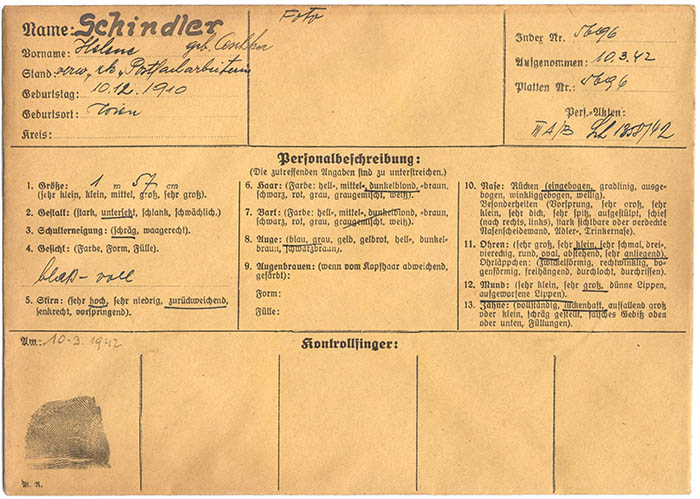 Name: Schindler
Foto
Index Nr. 5696
Vorname: Helene geb.
Aufgenommen: 10.3.42
Stand: verw., rk., Postfacharbeiterin
Platten Nr.: 5696
Geburtstag: 10.12.1910
Pers.-Akten:
Geburtsort: Wien
III A/B 1358/42
Kreis:
Personalbeschreibung:
(Die zutreffenden Angaben sind zu unterstreichen.)
1. Größe: 1 m 57 cm
(sehr klein, klein, mittel, groß, sehr groß).
2. Gestalt: (stark, untersetzt, schlank, schwächlich).
3. Schulterneigung: (schräg, waagerecht).
4. Gesicht: (Farbe, Form, Fülle).
blaß - voll
5. Stirn: (sehr hoch, sehr niedrig, zurückweichend,
senkrecht, vorspringend).
6. Haar: (Farbe: hell-, mittel-, dunkelblond, -braun,
schwarz, rot, grau, graugemischt, weiß).
7. Bart: (Farbe: hell-, mittel-, dunkelblond, -braun,
schwarz, rot, grau, graugemischt, weiß).
8. Auge: (blau, grau, gelb, gelbrot, hell-, dunkel-
braun, schwarzbraun).
9. Augenbrauen: (wenn vom Kopfhaar abweichend,
gefärbt):
Form:
Fülle:
10. Nase: Rücken (eingebogen, gradlinig, ausge-
bogen, winkliggebogen, wellig).
Besonderheiten (Vorsprung, sehr groß, sehr
klein, sehr dick, sehr spitz, aufgestülpt, schief
(nach rechts, links), stark sichtbare oder verdeckte
Nasenscheidewand, Adler-, Trinkernase).
11. Ohren: (sehr groß, sehr klein, sehr schmal, drei-,
viereckig, rund, oval, abstehend, sehr anliegend).
Ohrläppchen: (zwickelförmig, rechtwinklig, bo-
genförmig, freihängend, durchlocht, durchrissen).
12. Mund: (sehr klein, sehr groß, dünne Lippen,
aufgeworfene Lippen).
13. Zähne: (vollständig, lückenhaft, auffallend groß
oder klein, schräg gestellt, falsches Gebiß oben
oder unten, Füllungen).
Am: 10.3.1942
Kontrollfinger:
M. R.